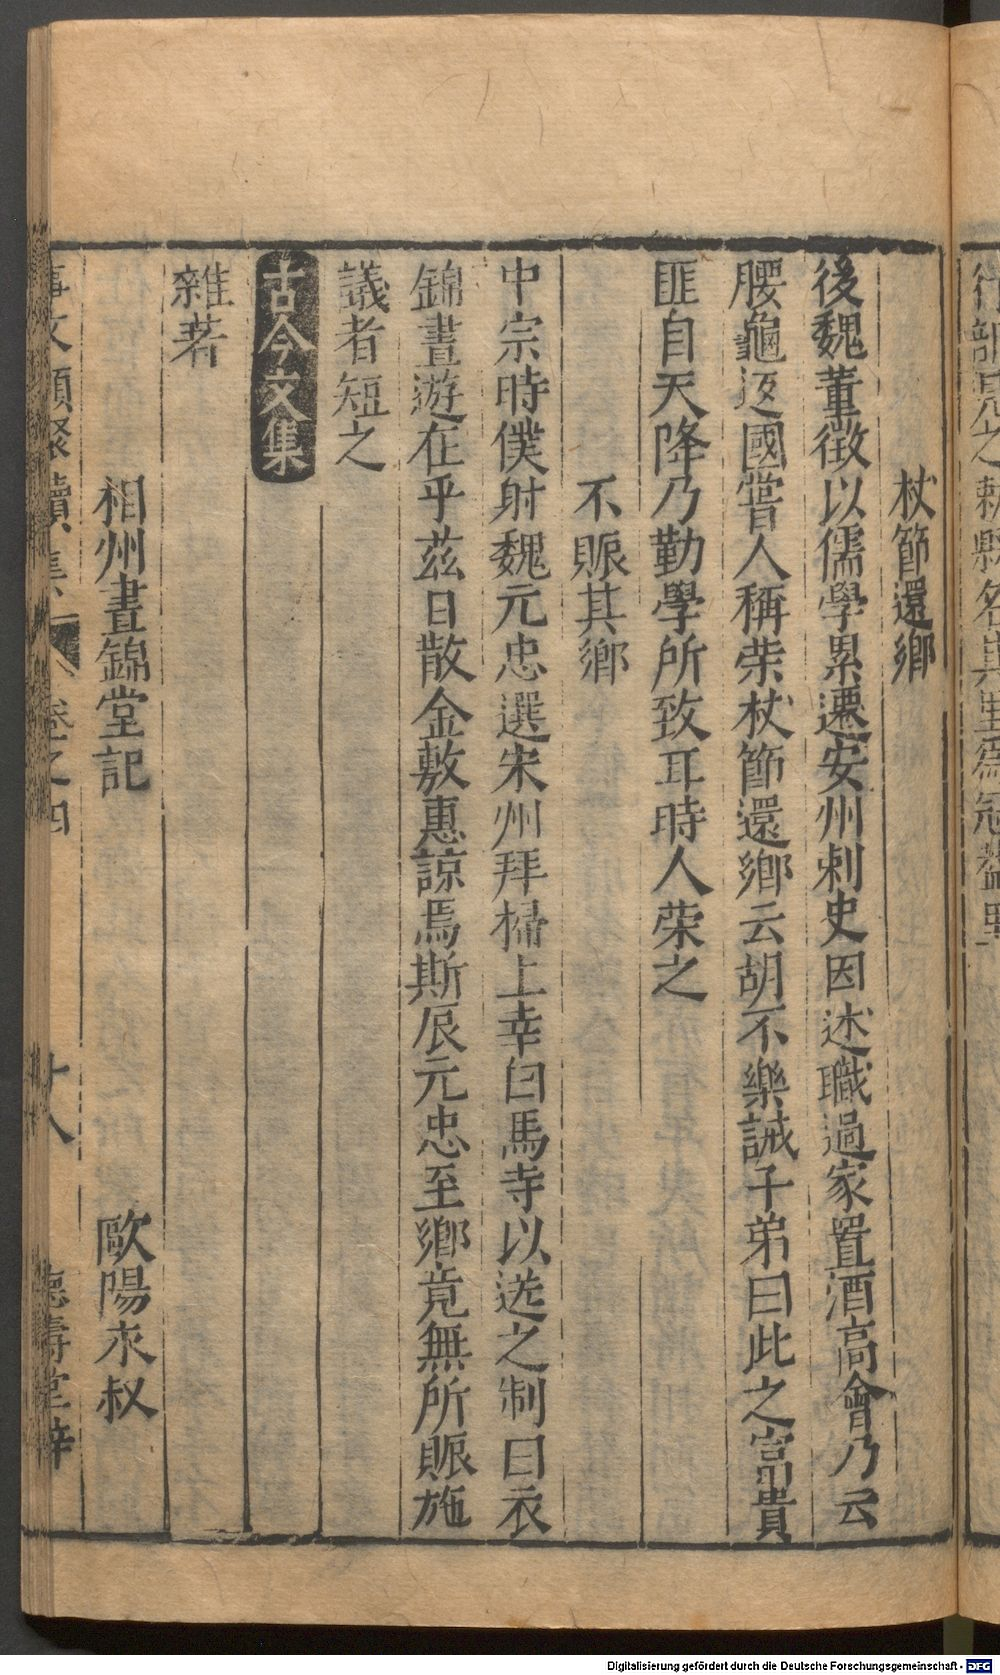 杖節還鄉
後魏董徵以儒學累遷安州刺史因述職過家置酒高會乃云
腰龜返國嘗人稱荣杖節還鄉云胡不樂誡子弟曰此之富貴
匪自天降乃勤學所致耳時人荣之
不賑其鄉
中宗時僕射魏元忠選宋州拜掃上幸白馬寺以送之制曰衣
錦晝遊在乎茲日散金敷惠諒焉斯辰元忠至鄉竟無所賑施
議者短之
古今文集
雜著
相州晝錦堂記 歐陽永叔
事文類聚續集 卷之四 十八 德壽堂梓
Digitalisierung gefördert durch die Deutsche Forschungsgemeinschaft - DFG